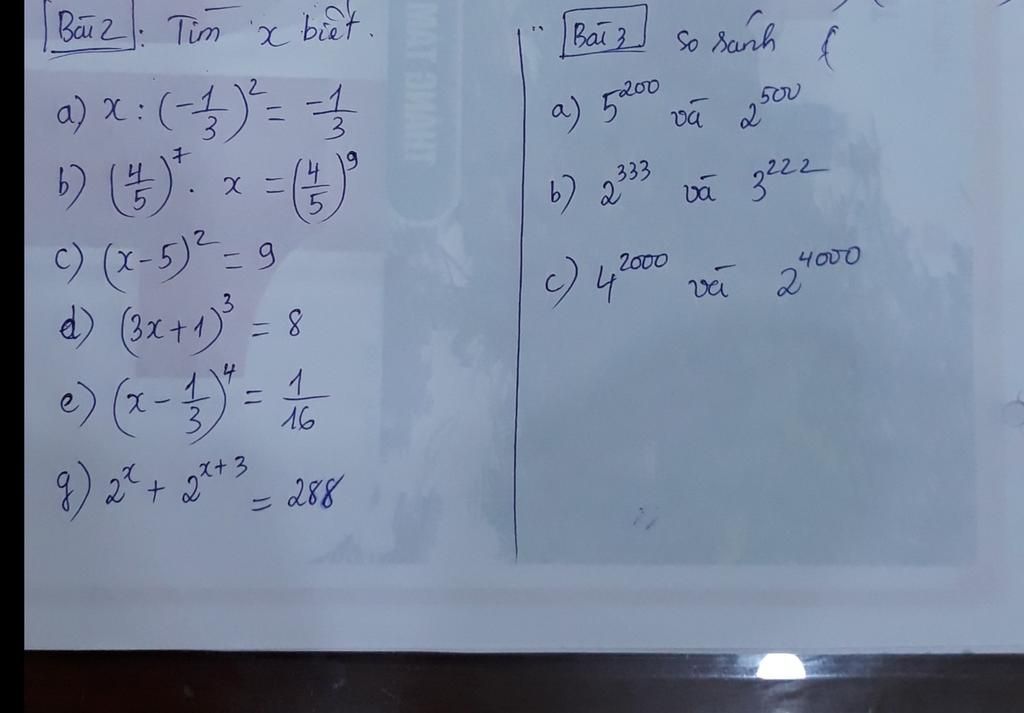 Bài 2 : Tìm x biết.
a) x : (-1/3)² = -1/3
b) (4/5)⁷ . x = (4/5)⁹
c) (x-5)² = 9
d) (3x+1)³ = 8
e) (x - 1/3)⁴ = 1/16
g) 2ˣ + 2ˣ⁺³ = 288
Bài 3 so sánh
a) 5²⁰⁰ và 2⁵⁰⁰
b) 2³³³ và 3²²²
c) 4²⁰⁰⁰ và 2⁴⁰⁰⁰